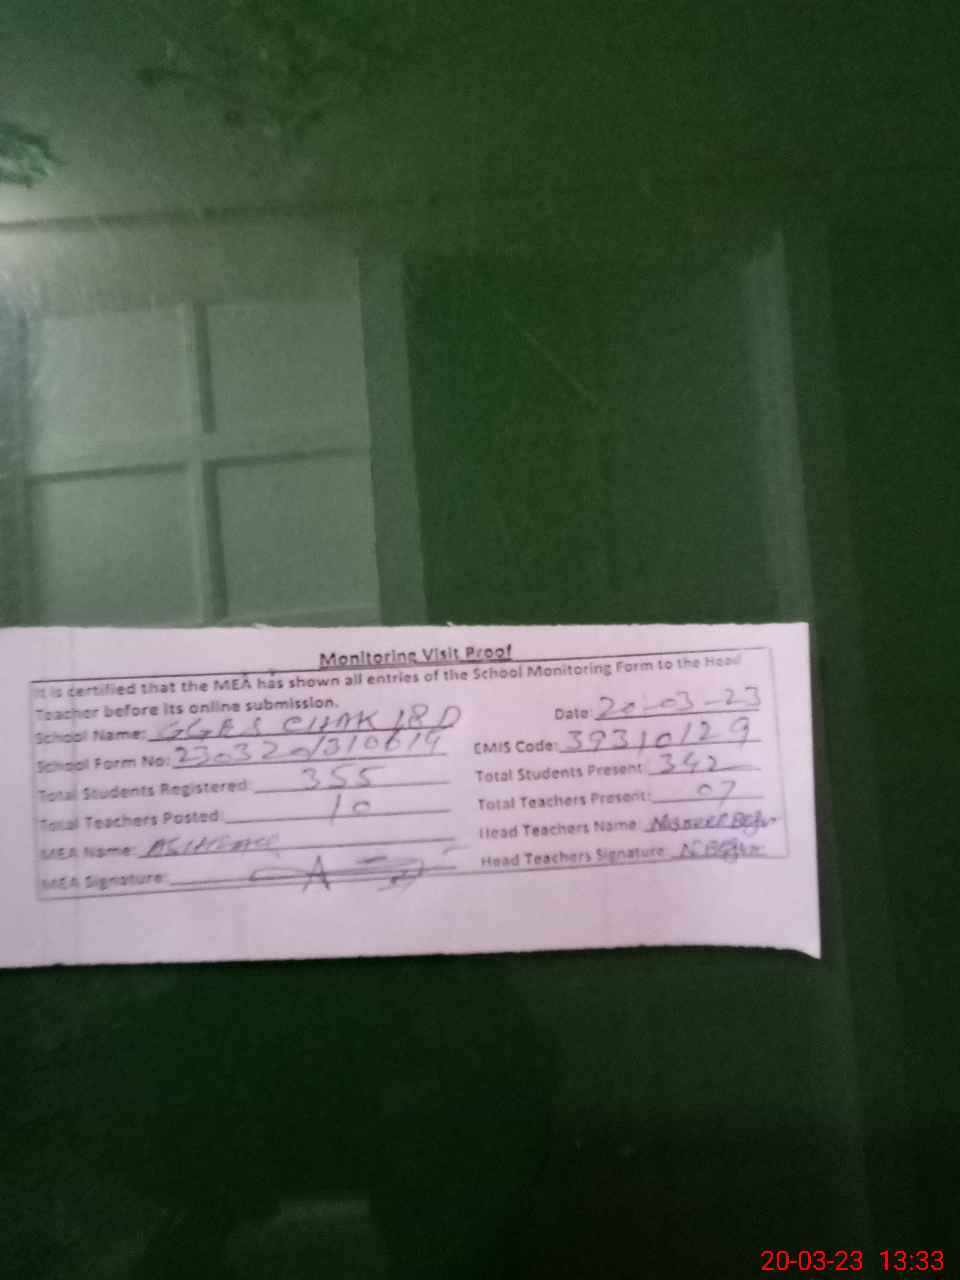 Monitoring Visit Proof
It is certified that the MEA has shown all entries of the School Monitoring Form to the Head
Teacher before its online submission.
Date: 20-03-23
School Name: GGES CHAK 18 D
EMIS Code: 39310129
School Form No: 230320/310614
Total Students Present: 342
Total Students Registered: 355
Total Teachers Present: 07
Total Teachers Posted: 10
Head Teachers Name:
MEA Name:
Head Teachers Signature:
MEA Signature:
20-03-23 13:33